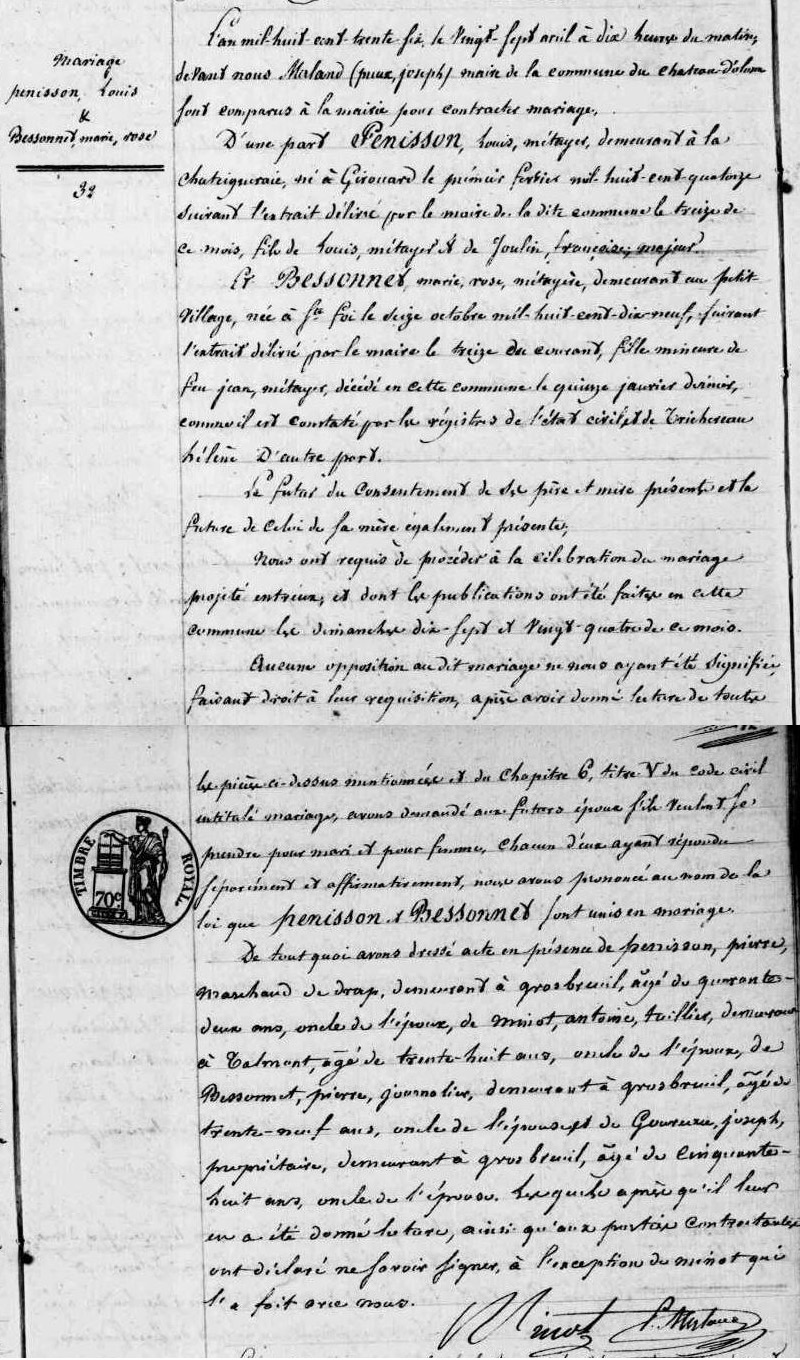 Mariage
penisson, Louis
&
Bessonnet, marie, rose
32
L'an mil-huit-cent-trente six, le Vingt-sept avril à dix heures du matin,
devant nous Merland (pierre, joseph) maire de la commune du chateau-d'olonne
sont comparus à la mairie pour contracter mariage,
D'une part Penisson, Louis, métayer, demeurant à la
Chateigneraie, né à Girouard le premier fevrier mil-huit-cent-quatorze
suivant l'extrait délivré par le maire de la dite commune le treize de
ce mois, fils de Louis, métayer & de Joulin, françoise, majeur.
Et Bessonnet, marie, rose, métayère, demeurant au petit
Village, née à Ste foi le seize octobre mil-huit-cent-dix-neuf, suivant
l'extrait délivré par le maire le treize du courant, fille mineure de
feu jean, métayer, décédé en cette commune le quinze janvier dernier,
comme il est constaté par les régistres de l'état civil, et de Trichereau
hélène D'autre part.
Le futur du Consentement de ses père et mere présents et la
future de celui de sa mère également présente,
Nous ont requis de procéder à la célébration du mariage
projeté entr'eux, et dont les publications ont été faites en cette
commune les dimanches dix-sept et Vingt-quatre de ce mois.
Aucune opposition au dit mariage ne nous ayant été signifiée,
faisant droit à leur requisition, après avoir donné lecture de toutes
les pièces ci-dessus mentionnées et du Chapitre 6, titre V du code civil
intitulé mariage, avons demandé aux futurs époux s'ils veulent se
prendre pour mari et pour femme, chacun d'eux ayant répondu
séparément et affirmativement, nous avons prononcé au nom de la
loi que penisson & Bessonnet sont unis en mariage.
De tout quoi avons dressé acte en présence de penisson, pierre,
marchand de drap, demeurant à grosbreuil, âgé de quarante-
deux ans, oncle de l'époux, de minot, antoine, tuillier, demeurant
à Talmont, âgé de trente-huit ans, oncle de l'époux, de
Bessonnet, pierre, journalier, demeurant à grosbreuil, âgé de
trente-neuf ans, oncle de l'épouse & de joseph,
propriétaire, demeurant à grosbreuil, âgé de cinquante-
huit ans, oncle de l'épouse. Lesquels après qu'il leur
en a été donné lecture, ainsi qu'aux parties contractantes
ont déclaré ne savoir signer, à l'exception de minot qui
l'a fait avec nous.
Minot P. Merland
TIMBRE ROYAL
70c